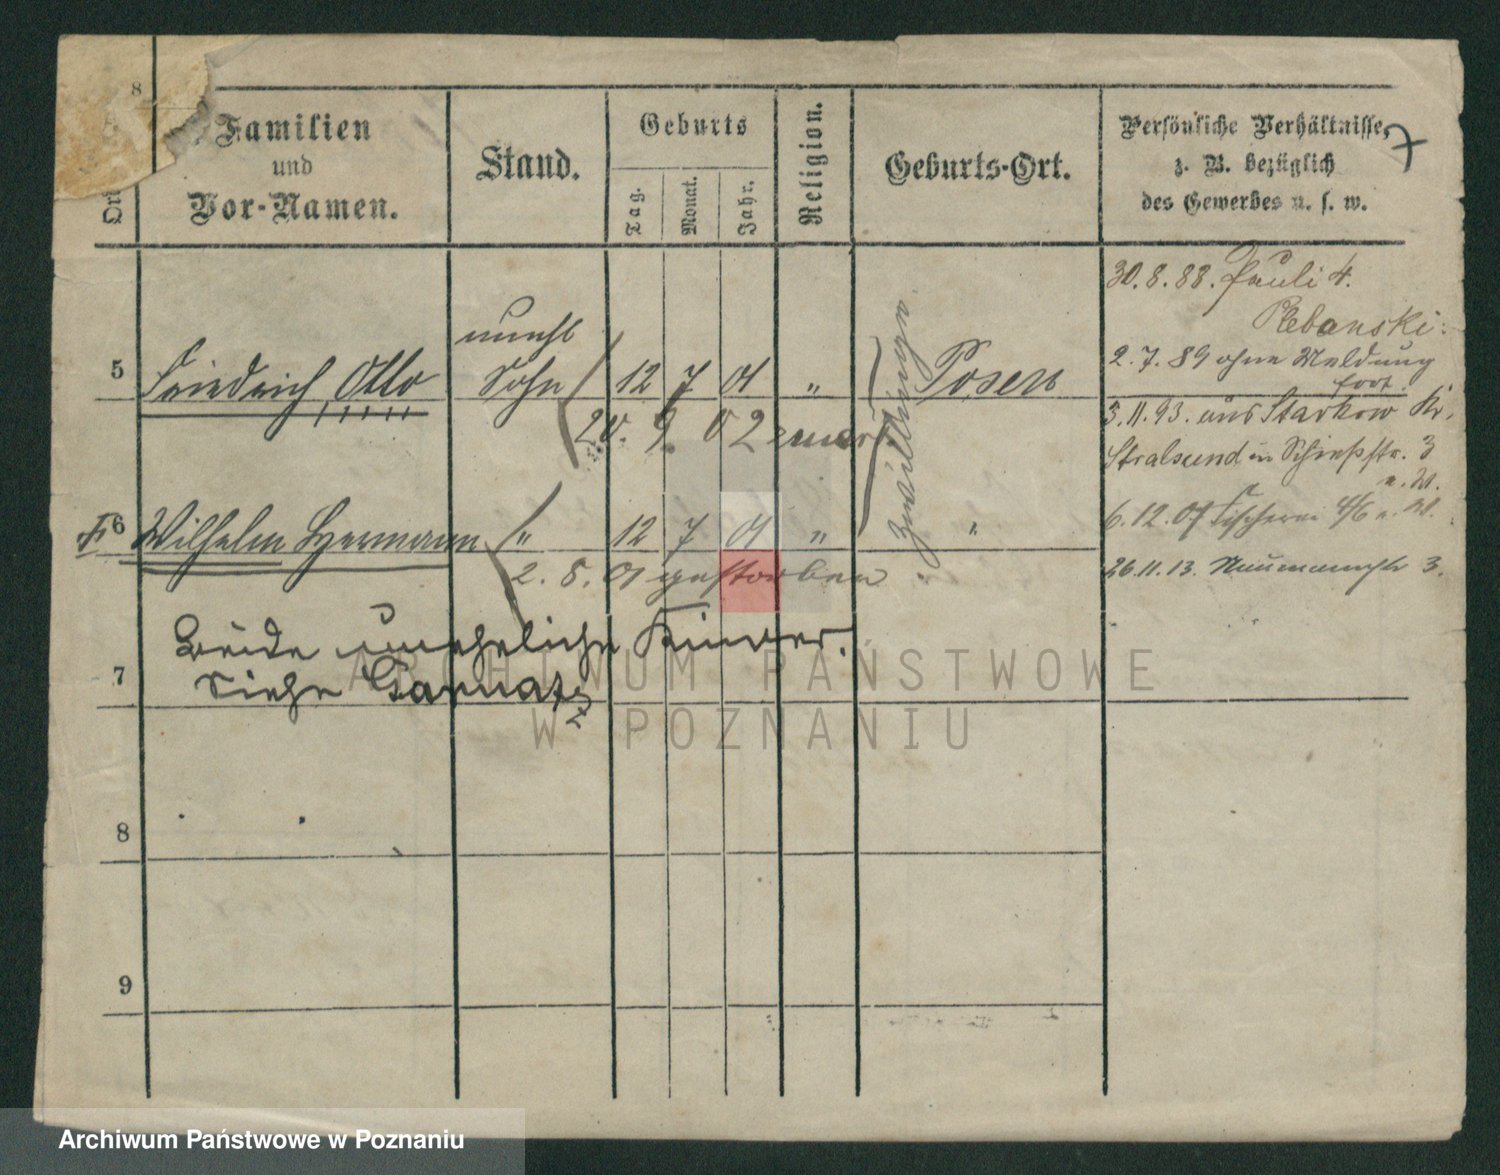 8
Familien
und
Vor-Namen.
Stand.
Geburts
Tag.
Monat.
Jahr.
Religion.
Geburts-Ort.
Persönliche Verhältnisse,
z. B. bezüglich
des Gewerbes u. s. w.
30.8.88. Pauli 4.
2.7.89 ohne Meldung
fort.
3.11.93. aus Starkow Kr.
Stralsund in Schießstr. 3
6.12.07 Fischerei 4/6 a. W.
26.11.13. Naumannstr 3.
unehl
5 Friedrich Otto Sohn 12 7 01 " Posen
20. 9. 02
Zwillinge
6 Wilhelm Hermann " 12 7 01 " "
2. 8. 01 gestorben
Beide uneheliche Kinder.
7 Siehe
8
9
ARCHIWUM PAŃSTWOWE
W POZNANIU
Archiwum Państwowe w Poznaniu